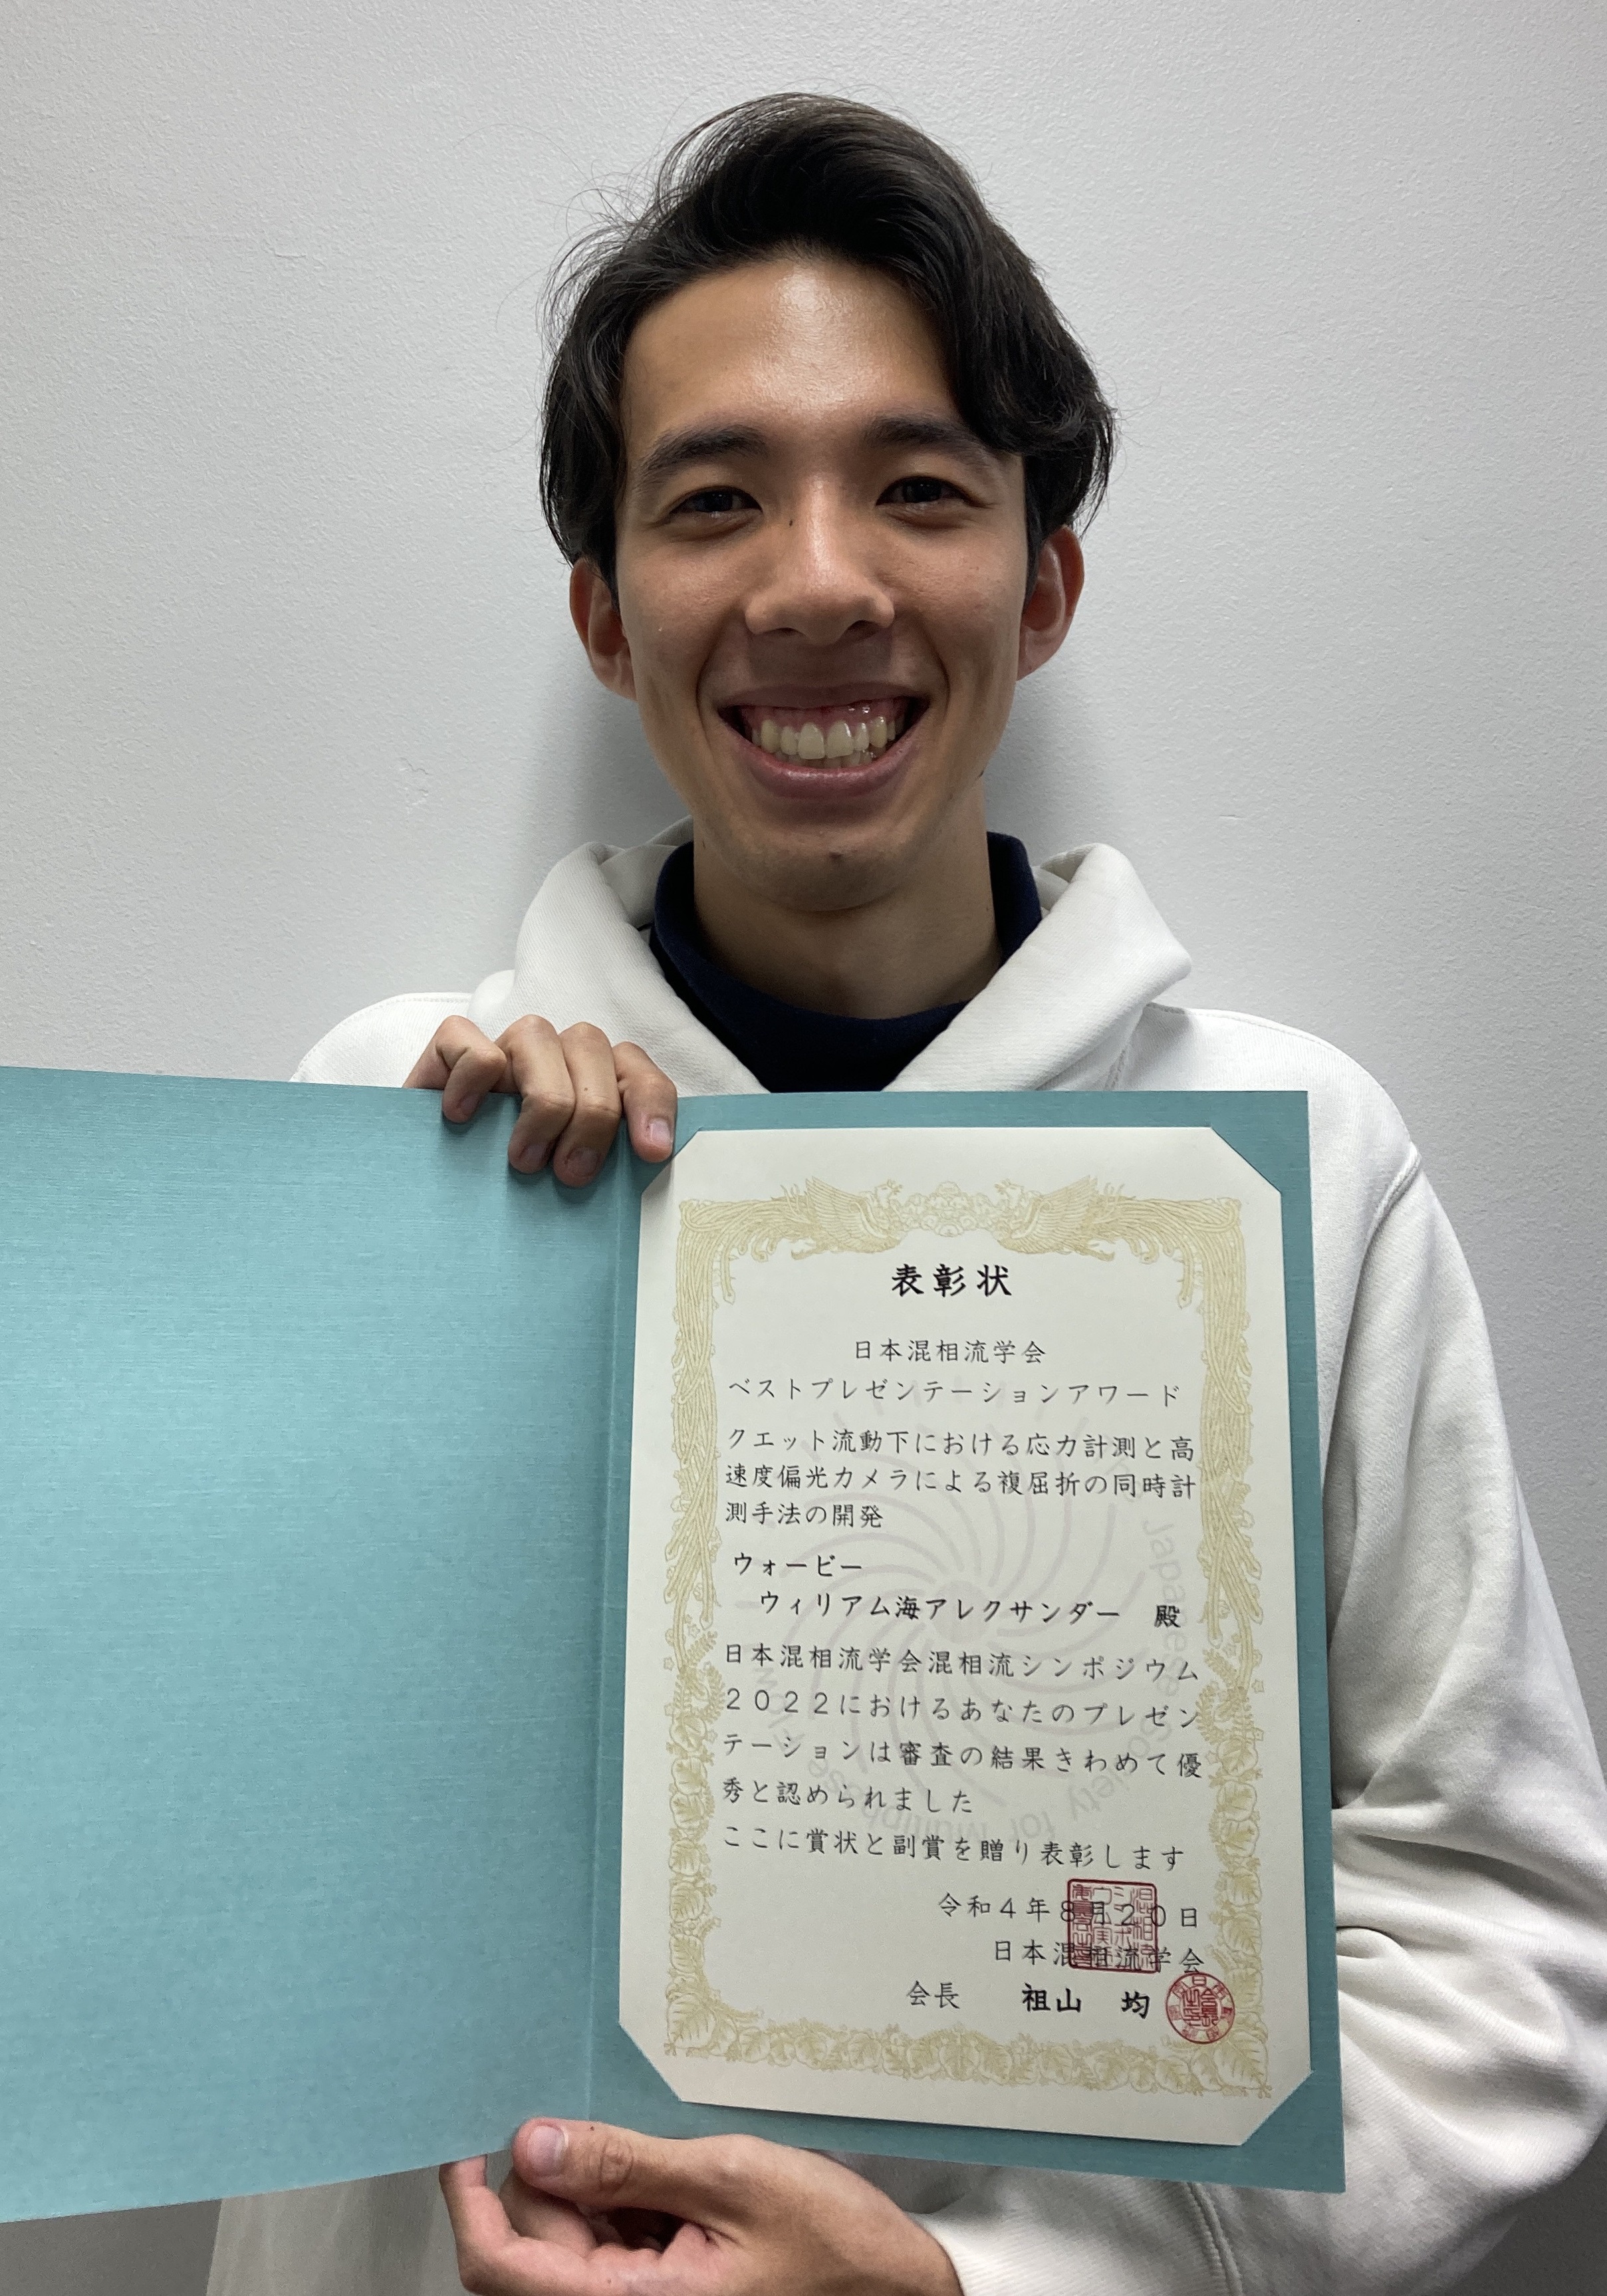 表彰状
日本混相流学会
ベストプレゼンテーションアワード
クエット流動下における応力計測と高
速度偏光カメラによる複屈折の同時計
測手法の開発
ウォービー
ウィリアム海アレクサンダー 殿
日本混相流学会混相流シンポジウム
2022におけるあなたのプレゼン
テーションは審査の結果きわめて優
秀と認められました
ここに賞状と副賞を贈り表彰します
令和4年8月20日
日本混相流学会
会長 祖山 均